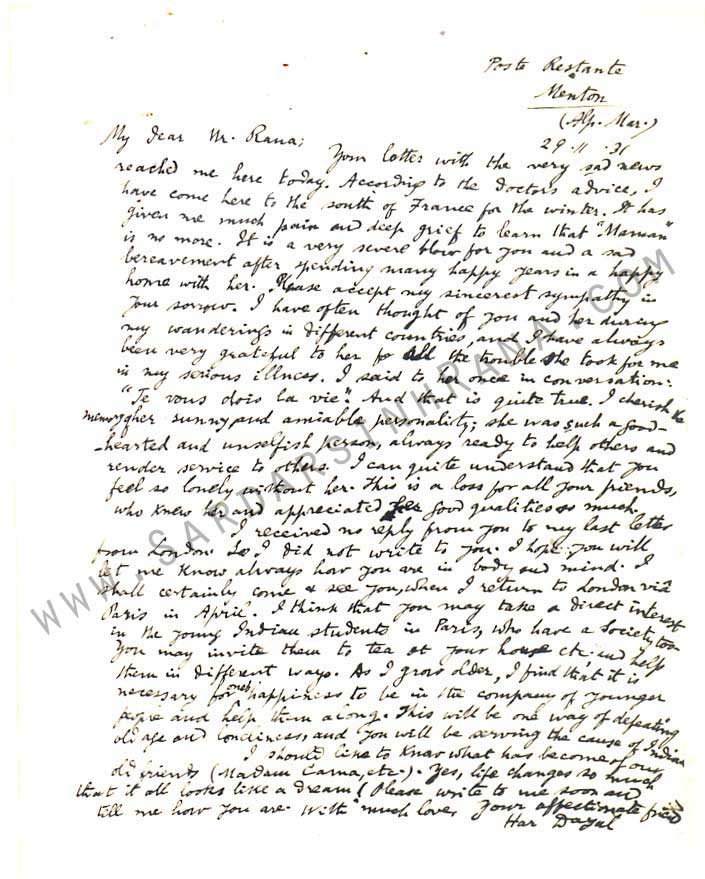 Poste Restante
Menton
(Alp. Mar.)
29.11.31
My dear Mr. Rana;
Your letter with the very sad news
reached me here today. According to the doctor's advice, I
have come here to the south of France for the winter. It has
given me much pain and deep grief to learn that "Maman"
is no more. It is a very severe blow for you and a sad
bereavement after spending many happy years in a happy
home with her. Please accept my sincerest sympathy in
your sorrow. I have often thought of you and her during
my wanderings in different countries, and I have always
been very grateful to her for all the trouble she took for me
in my serious illness. I said to her once in conversation:
"Je vous dois la vie". And that is quite true. I cherish the
memory of her sunny and amiable personality; she was such a good-
-hearted and unselfish person, always ready to help others and
render service to others. I can quite understand that you
feel so lonely without her. This is a loss for all your friends,
who knew her and appreciated her good qualities so much.
I received no reply from you to my last letter
from London. So I did not write to you. I hope you will
let me know always how you are in body and mind. I
shall certainly come & see you, when I return to London via
Paris in April. I think that you may take a direct interest
in the young Indian students in Paris, who have a Society too.
You may invite them to tea at your house etc. and help
them in different ways. As I grow older, I find that it is
necessary for my happiness to be in the company of younger
people and help them along. This will be one way of defeating
old age and loneliness, and you will be serving the cause of India.
I should like to know what has become of our
old friends (Madam Cama, etc.). Yes, life changes so much
that it all looks like a dream! Please write to me soon and
tell me how you are. With much love, Your affectionate friend
Har Dayal
WWW.SARDARSINHRANA.COM